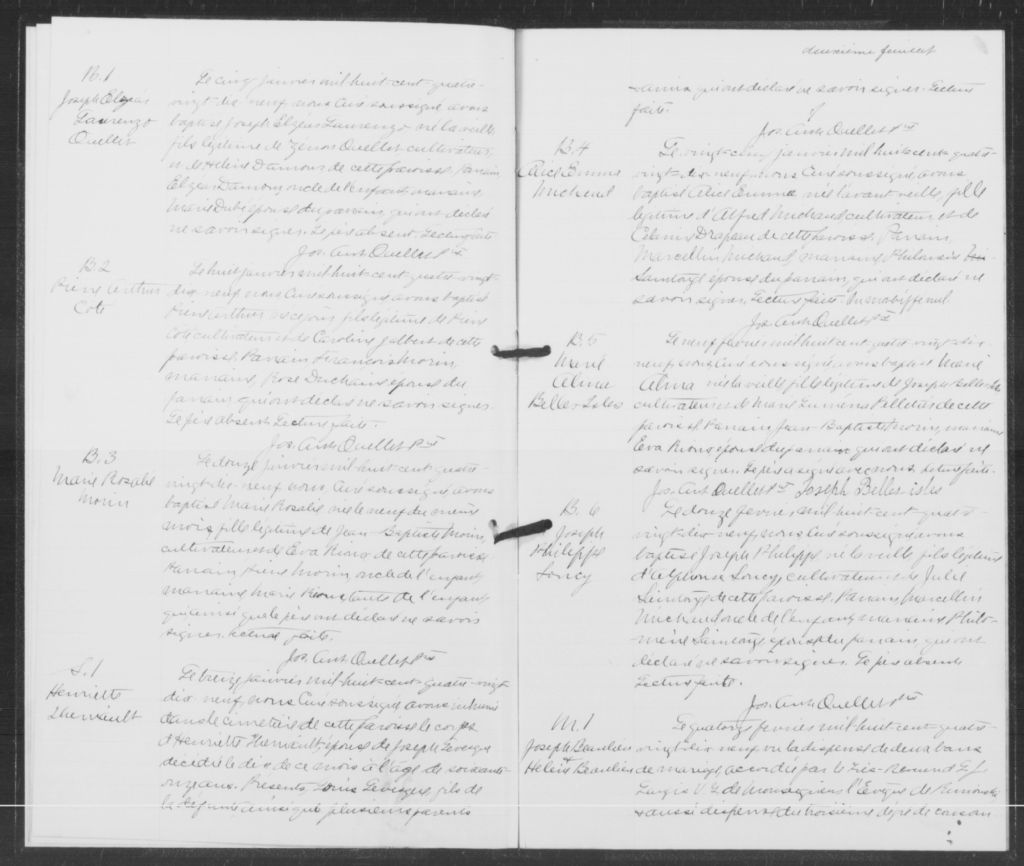 B.1
Joseph Elzéar
Laurenzo
Ouellet
Le cinq janvier mil huit cent quatre-
vingt-dix-neuf nous Curé soussigné avons
baptisé Joseph Elzéar Laurenzo né la veille
fils légitime de Zénon Ouellet cultivateur,
et de Hélène Damours de cette paroisse. Parrain
Elzéar Damours oncle de l'enfant marraine
Marie Dubé épouse du parrain qui ont déclaré
ne savoir signer. Le père absent. Lecture faite
Jos. Anth Ouellet Ptre
B.2
Pierre Arthur
Coté
Le huit janvier mil huit cent quatre vingt
dix-neuf nous Curé soussigné avons baptisé
Pierre Arthur né ce jour fils légitime de Pierre
Coté cultivateur et de Caroline Jalbert de cette
paroisse. Parrain François Morin
marraine Rose Duchaine épouse du
parrain qui ont déclaré ne savoir signer.
Le père absent. Lecture faite.
Jos. Anth Ouellet Ptre
B.3
Marie Rosalie
Morin
Le douze janvier mil huit cent quatre
vingt-dix-neuf nous Curé soussigné avons
baptisé Marie Rosalie née le neuf du même
mois, fille légitime de Jean-Baptiste Morin,
cultivateur et d'Eva Rioux de cette paroisse
Parrain Pierre Morin, oncle de l'enfant
marraine Marie Rioux tante de l'enfant
qui ainsi que le père ont déclaré ne savoir
signer. Lecture faite.
Jos. Anth Ouellet Ptre
S.1
Henriette
Therriault
Le treize janvier mil-huit-cent-quatre-vingt
dix neuf, nous Curé soussigné avons inhumé
dans le cimetière de cette paroisse le corps
d'Henriette Therriault épouse de Joseph Levesque
décédée le dix de ce mois à l'âge de soixante-
onze ans. Présents, Louis Levesque fils de
la défunte, ainsi que plusieurs parents
deuxième feuillet
qui ont déclaré ne savoir signer. Lecture
faite.
Jos. Anth Ouellet Ptre
B.4
Alice Emma
Michaud
Le vingt-cinq janvier mil huit cent quatre
vingt dix-neuf nous Curé soussigné avons
baptisé Alice Emma née l'avant veille, fille
légitime d'Alfred Michaud cultivateur et de
Célanire Drapeau de cette paroisse. Parrain
Marcellin Michaud marraine Philomène
Saintonge épouse du parrain, qui ont déclaré ne
savoir signer. Lecture faite. Un mot biffé nul
Jos. Anth Ouellet Ptre
B.5
Marie
Alma
Belles-Isles
Le neuf février mil huit cent quatre vingt dix
neuf, nous Curé soussigné avons baptisé Marie
Alma née la veille fille légitime de Joseph Belles-Isles
cultivateur et de Marie Luména Pelletier de cette
paroisse. Parrain Jean Baptiste Morin, marraine
Eva Rioux épouse du parrain qui ont déclaré ne
savoir signer. Le père a signé avec nous. Lecture faite.
Jos. Anth Ouellet Ptre Joseph Belles-isles
B.6
Joseph
Philippe
Soucy
Le douze février mil huit cent quatre-
vingt-dix-neuf nous Curé soussigné avons
baptisé Joseph Philippe né la veille fils légitime
d'Alphonse Soucy, cultivateur et de Julie
Saintonge de cette paroisse. Parrain Marcellin
Michaud oncle de l'enfant, marraine Philo-
mène Saintonge épouse du parrain, qui ont
déclaré ne savoir signer. Le père absent.
Lecture faite.
Jos. Anth Ouellet Ptre
M.1
Joseph Beaulieu
&
Helène Beaulieu
Le quatorze février mil huit cent quatre
vingt dix neuf vu la dispense de deux bans
de mariage accordée par le Très-Révérend
V.G. de Monseigneur l'Evêque de Rimouski
& aussi dispense du troisième degré de consan